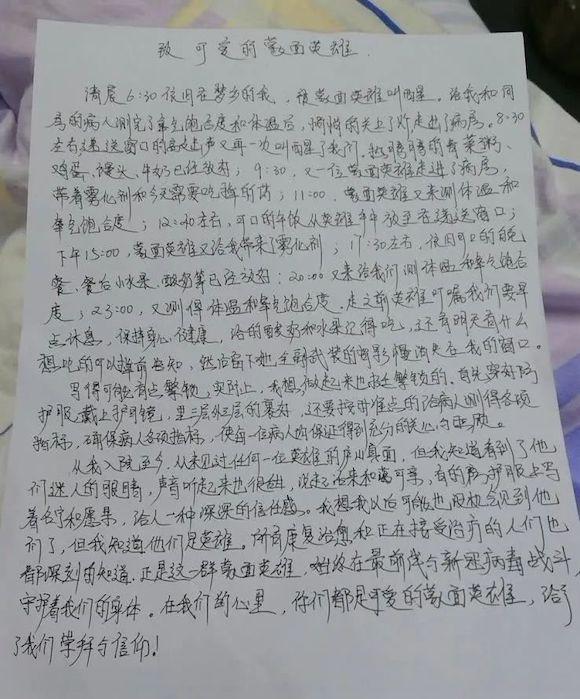 致可爱的蒙面英雄.
清晨6:30依旧在梦乡的我，被蒙面英雄叫醒。给我和同
房的病人测完了氧气饱合度和体温后，悄悄的关上了灯走出了病房。8:30
左右递送窗口的敲击声又再一次叫醒了我们，热腾腾的青菜粥、
鸡蛋、馒头、牛奶已经放好；9:30，又一位蒙面英雄走进了病房，
带着雾化剂和今天需要吃的药；11:00，蒙面英雄又来测体温和
氧气饱合度；12:00左右，可口的午饭从英雄手中放至在递送窗口；
下午15:00，蒙面英雄又给我带来了雾化剂；17:30左右，依旧可口的晚
餐、餐后小水果、酸奶等已经放好；20:00又来给我们测体温和氧气饱合
度；23:00，又测得体温和氧气饱合度，走之前英雄叮嘱我们要早
点休息，保持身心健康，给的酸奶和水果记得吃，还有明天有什么
想吃的可以提前告知，然后留下她全副武装的背影慢慢消失在我的窗口。
写得可能有点繁锁，实际上，我想做起来也挺繁锁的。首先穿好防
护服、戴上护目镜，里三层外三层的裹好，还要按时准点的给病人测得各项
指标，确保病人各项指标，使每一位病人的保证得到充分的关心与照顾。
从我入院至今，从未见过任何一位英雄的庐山真面，但我知道看到了他
们迷人的眼睛，声音听起来也很甜，说起话来和蔼可亲，有的防护服上写
着名字和愿景，给人一种深深的信任感。我想我以后可能也没机会见到他
们了，但我知道他们是英雄。所有康复治愈和正在接受治疗的人们也
都深刻的知道，正是这一群蒙面英雄，始终在最前线与新冠病毒战斗，
守护着我们的身体。在我们的心里，你们都是可爱的蒙面英雄，给予
了我们崇拜与信仰！